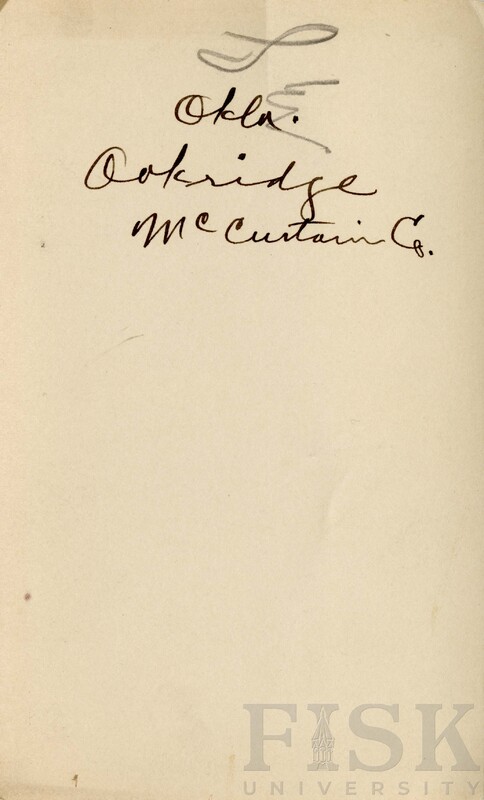 Okla.
Oakridge
Mc Curtain Co.
FISK
UNIVERSITY